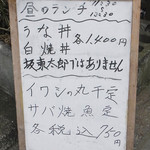 昼のランチ 11:30
うな丼
白焼丼 各1,400円
坂東太郎ではありません
イワシの丸干定
サバ焼魚定
各税込750円